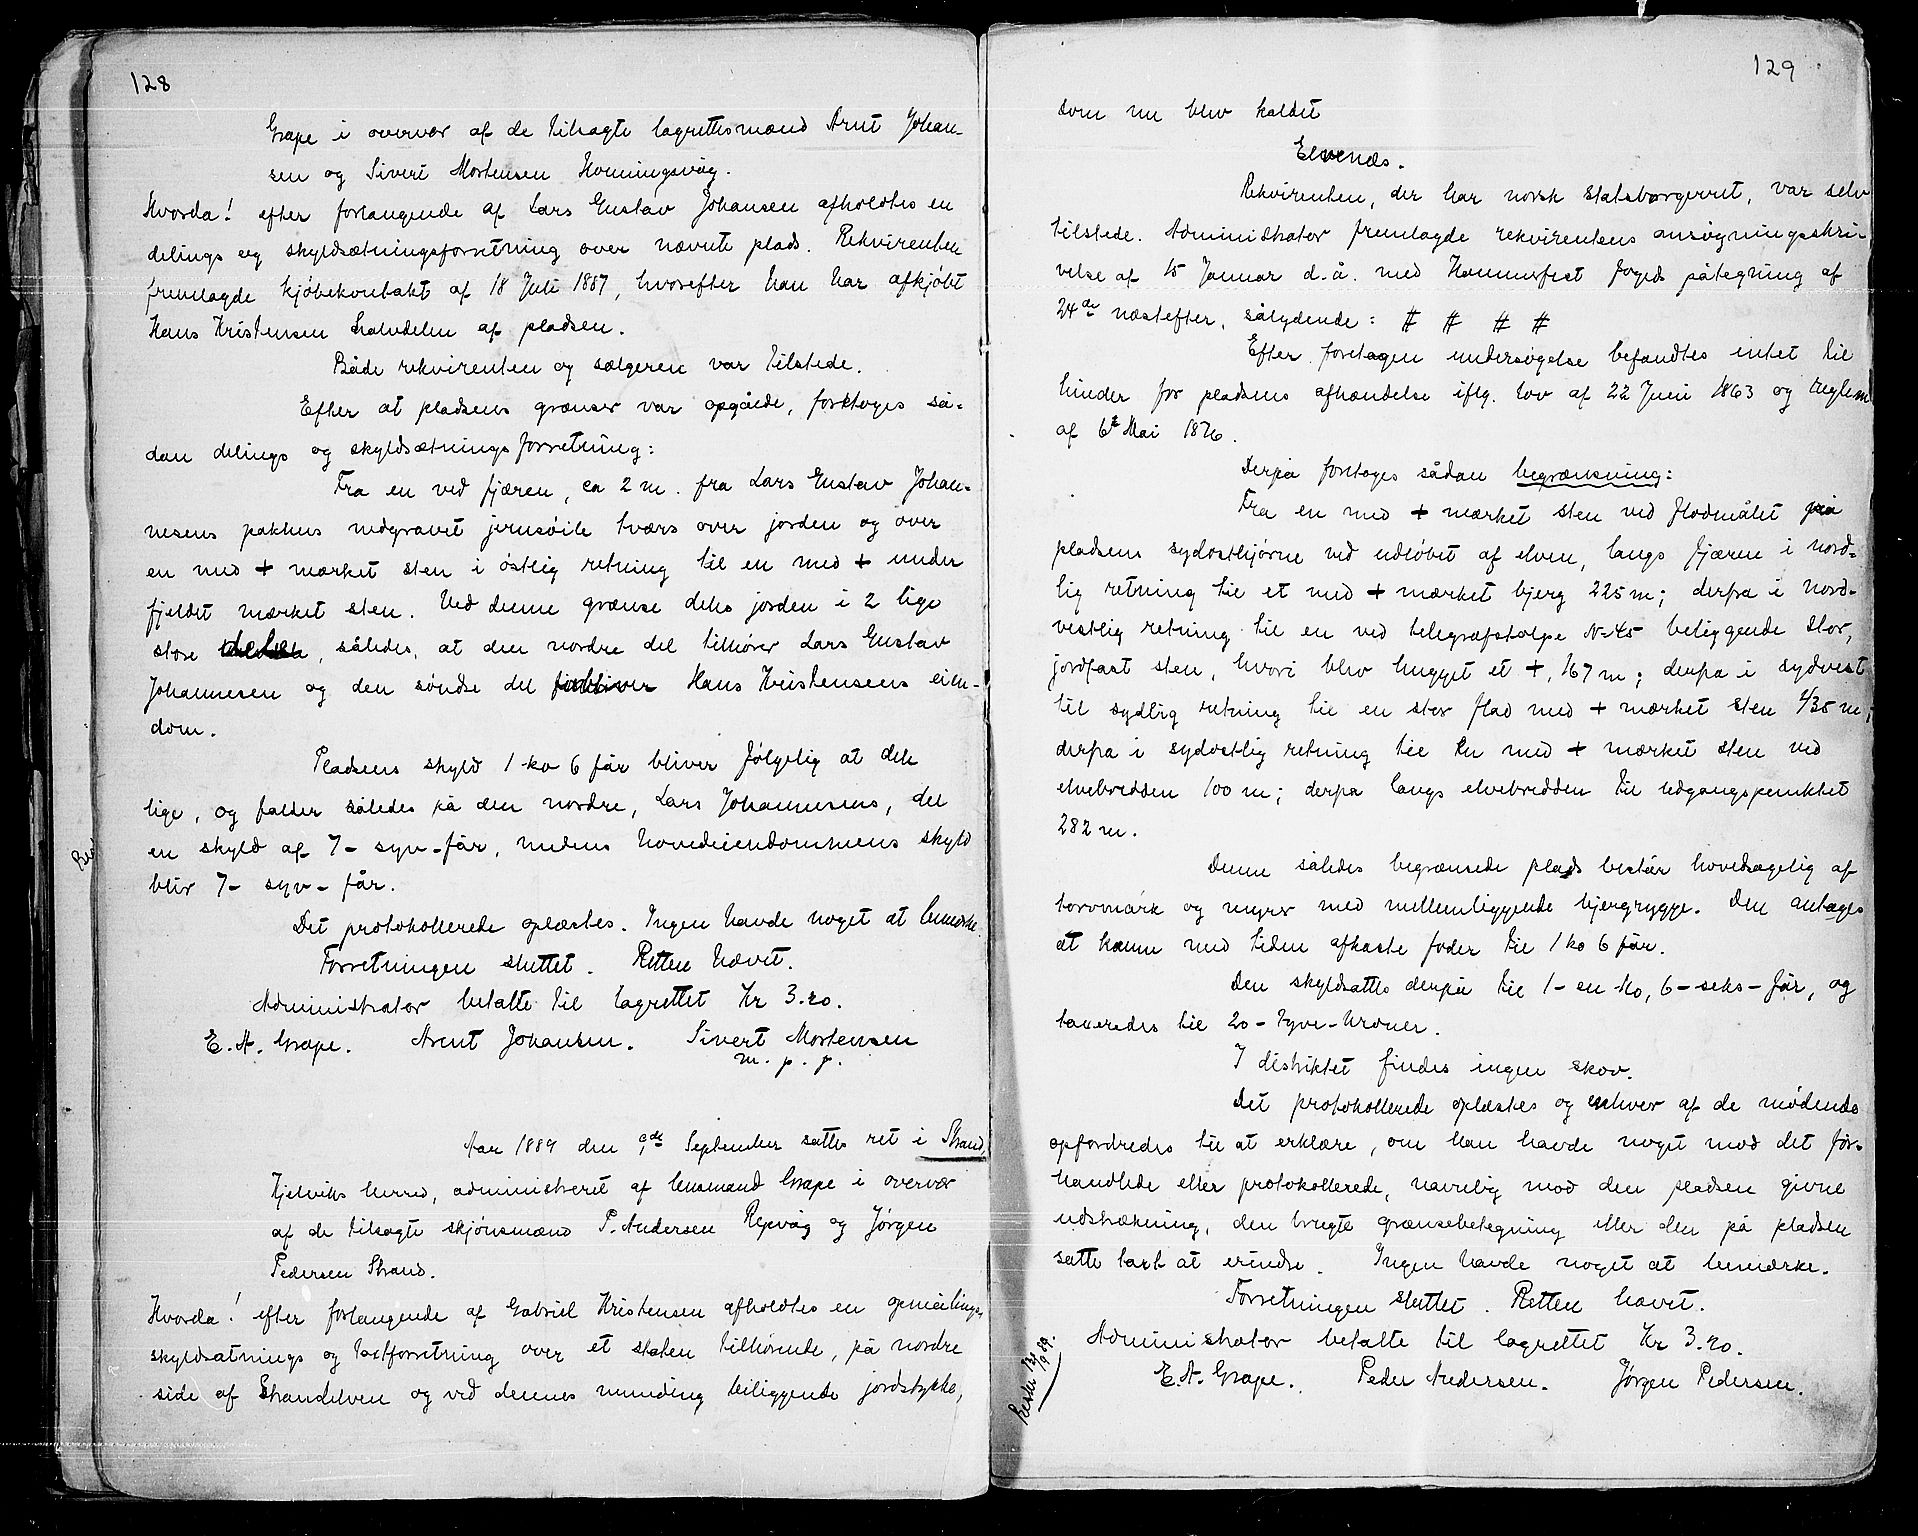 128
Grape i overvær af de tilsagte lagrettesmænd Arnt Johan-
sen og Sivert Mortensen Honningsvåg.
Hvorda! efter forlangende af Lars Gustav Johansen afholdtes en
delings og skyldsætningsforretning over nævnte plads. Rekvirenten
fremlagde kjøbekontrakt af 18 Juli 1887, hvorefter han har afkjøbt
Hans Kristensen halvdelen af pladsen.
Både rekvirenten og sælgeren var tilstede.
Efter at pladsens grænser var opgåede, foretoges så-
dan delings og skyldsætningsforretning:
Fra en ved fjæren, ca 2 m. fra Lars Gustav Johan-
nesens pakhus nedgravet jernsöile tværs over jorden og over
en med + mærket sten i östlig retning til en med + under
fjeldet mærket sten. Ved denne grænse deles jorden i 2 lige
store , således, at den nordre del tilhører Lars Gustav
Johannesen og den søndre del forbliver Hans Kristensens eien-
dom.
Pladsens skyld 1 ko 6 får bliver følgelig at dele
lige, og falder således på den nordre, Lars Johannesens, del
en skyld af 7 - syv - får, medens hovedeiendommens skyld
blir 7 - syv - får.
Det protokollerede oplæstes. Ingen havde noget at bemærke.
Forretningen sluttet. Retten hævet.
Administrator betalte til lagrettet Kr 3.20.
E. A. Grape. Arnt Johansen. Sivert Mortensen
m. p. p.
Aar 1889 den 9de September sattes ret i Strand,
Kjelviks herred, administreret af lensmand Grape i overvær
af de tilsagte skjönsmænd P. Andersen Repvåg og Jørgen
Pedersen Strand.
Hvorda! efter forlangende af Gabriel Kristensen afholdtes en opmålings,
skyldsætnings og taxtforretning over et staten tilhørende, på nordre
side af Strandelven og ved dennes munding beliggende jordstykke,
129
som nu blev kaldet
Elvenæs.
Rekvirenten, der har norsk statsborgerret, var selv
tilstede. Administrator fremlagde rekvirentens ansøgningsskri-
velse af 15 Januar d.å. med Hammerfest fogeds påtegning af
24de næstefter, sålydende: # # # #
Efter foretagen undersøgelse befandtes intet til
hinder for pladsens afhændelse iflg. lov af 22 Juni 1863 og reglem
af 6te Mai 1876.
Derpå foretoges sådan begrænsning:
Fra en med + mærket sten ved flodmålet på
pladsens sydosthjørne ved udløbet af elven, langs fjæren i nord-
lig retning til et med + mærket bjerg 225 m; derpa i nord-
vestlig retning til en ved telegrafstolpe N=45 beliggende stor,
jordfast sten, hvori blev hugget et +, 167 m; derpa i sydvest
til sydlig retning til en stor flad med + mærket sten 435 m;
derpa i sydostlig retning til en med + mærket sten ved
elvebredden 100 m; derpa langs elvebredden til udgangspunktet
282 m.
Denne således begrænsede plads består hovedsagelig af
torvmark og myrer med mellemliggende bjergrygge. Den antages
at kunne med tiden afkaste foder til 1 ko 6 får.
Den skyldsattes derpå til 1 - en - ko, 6 - seks - får, og
taxeredes til 20 - tyve - kroner.
I distriktet findes ingen skov.
Det protokollerede oplæstes og enhver af de mødende
opfordredes til at erklære, om han havde noget mod det for-
handlede eller protokollerede, navnlig mod den pladsen givne
udstrækning, den brugte grænsebetegning eller den på pladsen
satte taxt at erindre. Ingen havde noget at bemærke.
Forretningen sluttet. Retten hævet.
Administrator betalte til lagrettet Kr 3.20.
E. A. Grape. Peder Andersen. Jørgen Pedersen.